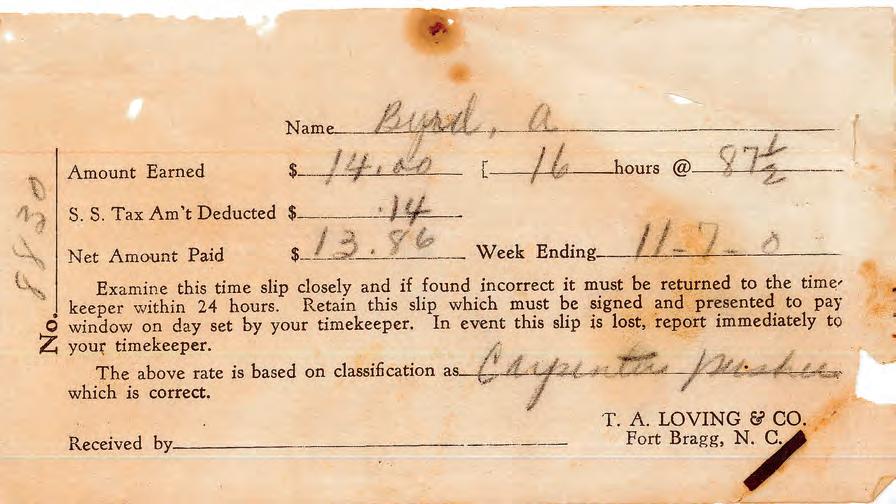 Name Byrd, A
Amount Earned $ 14.00 [ 16 hours @ 87½
S. S. Tax Am't Deducted $ .14
Net Amount Paid $ 13.86 Week Ending 11-7-0
No. 8830
Examine this time slip closely and if found incorrect it must be returned to the time-
keeper within 24 hours. Retain this slip which must be signed and presented to pay
window on day set by your timekeeper. In event this slip is lost, report immediately to
your timekeeper.
The above rate is based on classification as Carpenter pusher
which is correct.
T. A. LOVING & CO.
Fort Bragg, N. C.
Received by